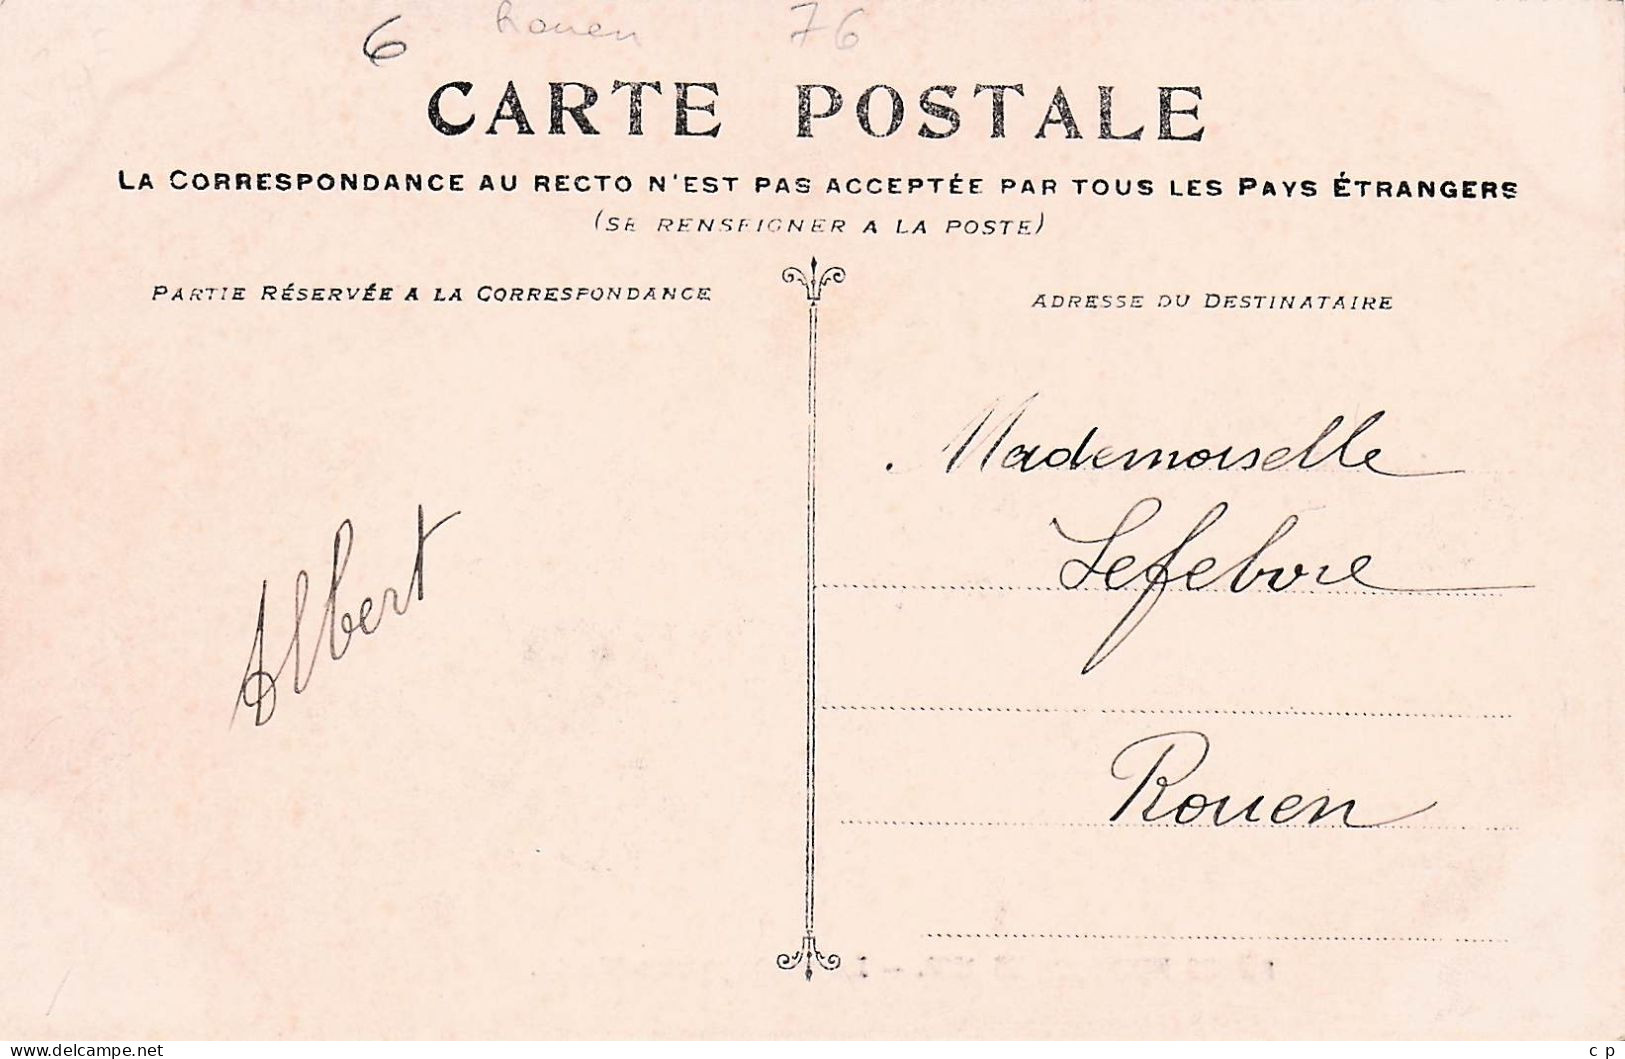 6 Rouen 76
CARTE POSTALE
LA CORRESPONDANCE AU RECTO N'EST PAS ACCEPTÉE PAR TOUS LES PAYS ÉTRANGERS
(SE RENSEIGNER A LA POSTE)
PARTIE RÉSERVÉE A LA CORRESPONDANCE
ADRESSE DU DESTINATAIRE
Albert
Mademoiselle
Lefebvre
Rouen
www.delcampe.net
c p